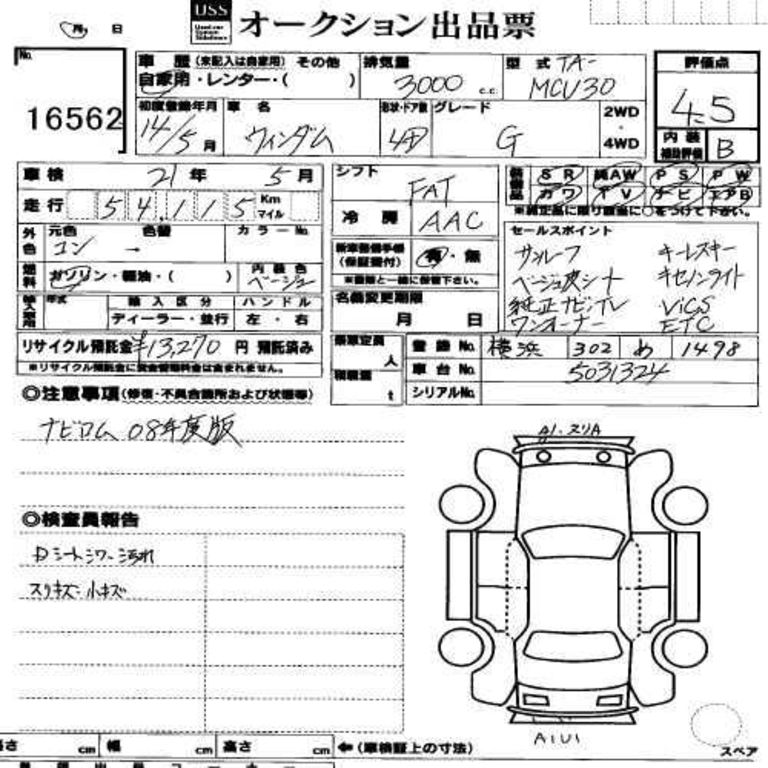 USS オークション出品票
月 日
No.
16562
車歴 (未記入は自家用) その他
自家用・レンター・( )
排気量
3000 c.c.
型式 TA-
MCU30
評価点
4.5
内装
補助評価 B
初度登録年月
14/5月
車名
ウィンダム
形状・ドア数
4D
グレード
G
2WD
・
4WD
車検 21年 5月
走行 54,115 Km マイル
シフト
FAT
冷房 AAC
SR 純AW PS PW
カワ TV ナビ エアB
※純正品に限り該当に○をつけて下さい。
外色
元色
コン
色替
→
カラーNo.
燃料
ガソリン・軽油・( )
内装色
ベージュ
新車整備手帳
(保証書付)
有・無
※書類と一緒に保管下さい。
セールスポイント
サンルーフ キーレスキー
ベージュ皮シート キセノンライト
純正ナビ、TV ViCS
ワンオーナー ETC
年式
輸入区分
ハンドル
ディーラー・並行 左・右
名義変更期限
月 日
リサイクル預託金 ¥13,270 円 預託済み
※リサイクル預託金に資金管理料金は含まれません。
乗車定員
人
積載量
t
登録No. 横浜 302 め 1498
車台No. 5031324
シリアルNo.
◎注意事項(修復・不具合箇所および状態等)
ナビロム 08年度版
◎検査員報告
Dシートシワ・汚れ
スリキズ・小キズ
A1・スリA
A1U1
スペア
長さ cm 幅 cm 高さ cm ←(車検証上の寸法)